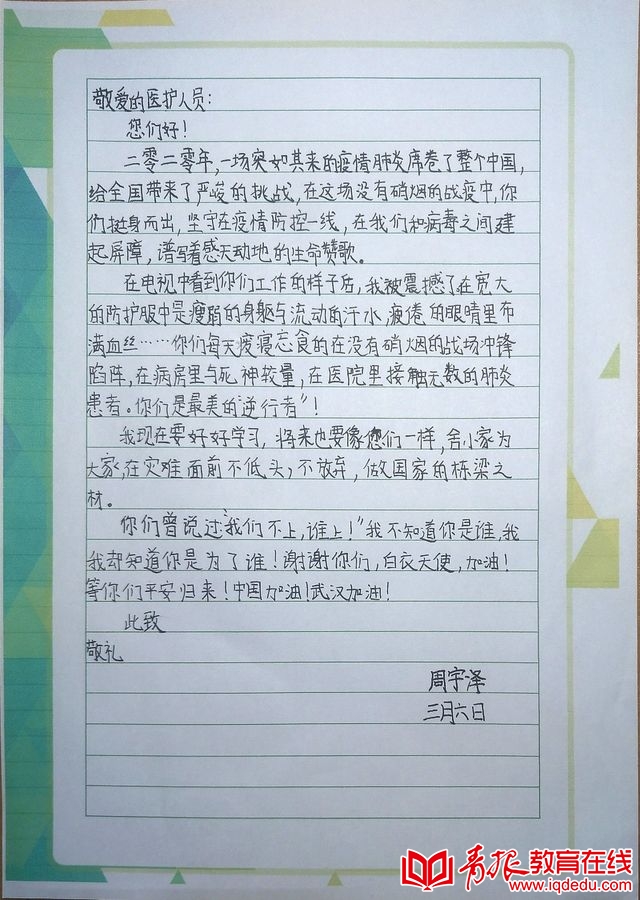 敬爱的医护人员：
您们好！
二零二零年，一场突如其来的疫情肺炎席卷了整个中国，
给全国带来了严峻的挑战，在这场没有硝烟的战疫中，你
们挺身而出，坚守在疫情防控一线，在我们和病毒之间建
起屏障，谱写着感天动地的生命赞歌。
在电视中看到你们工作的样子后，我被震撼了在宽大
的防护服中是瘦弱的身躯与流动的汗水，疲倦的眼睛里布
满血丝……你们每天废寝忘食的在没有硝烟的战场冲锋
陷阵，在病房里与死神较量，在医院里接触无数的肺炎
患者。你们是最美的“逆行者”！
我现在要好好学习，将来也要像您们一样，舍小家为
大家，在灾难面前不低头，不放弃，做国家的栋梁之
材。
你们曾说过“我们不上，谁上！”我不知道你是谁，我
我却知道你是为了谁！谢谢你们，白衣天使，加油！
等你们平安归来！中国加油！武汉加油！
此致
敬礼
周宇泽
三月六日
青报教育在线
www.iqdedu.com